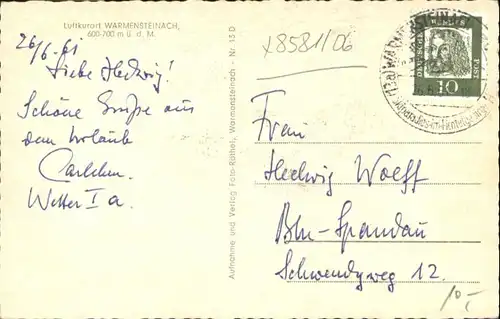 Luftkurort WARMENSTEINACH,
600-700 m ü. d. M.
26/6.61
x8581/06
Liebe Hedwig!
Schöne Grüße aus
dem Urlaub
Wetter I a.
Aufnahme und Verlag Foto-Räthel, Warmensteinach - Nr. 15 D
10
Frau
Hedwig Woeff
Bln-Spandau
Schwendyweg 12.
10,-